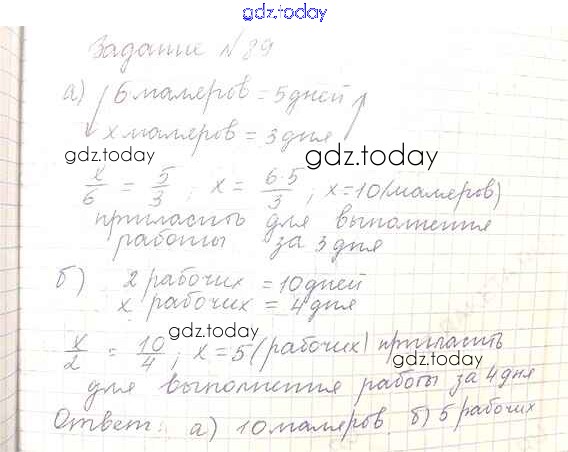 gdz.today
Задание №89
а) 6 маляров = 5 дней
х маляров = 3 дня
gdz.today
gdz.today
х/6 = 5/3 ; х = 6·5/3 ; х = 10 (маляров)
пригласить для выполнения
работы за 3 дня
б) 2 рабочих = 10 дней
х рабочих = 4 дня
gdz.today
х/2 = 10/4 ; х = 5 (рабочих) пригласить
gdz.today
для выполнения работы за 4 дня
Ответ: а) 10 маляров. б) 5 рабочих
gdz.today